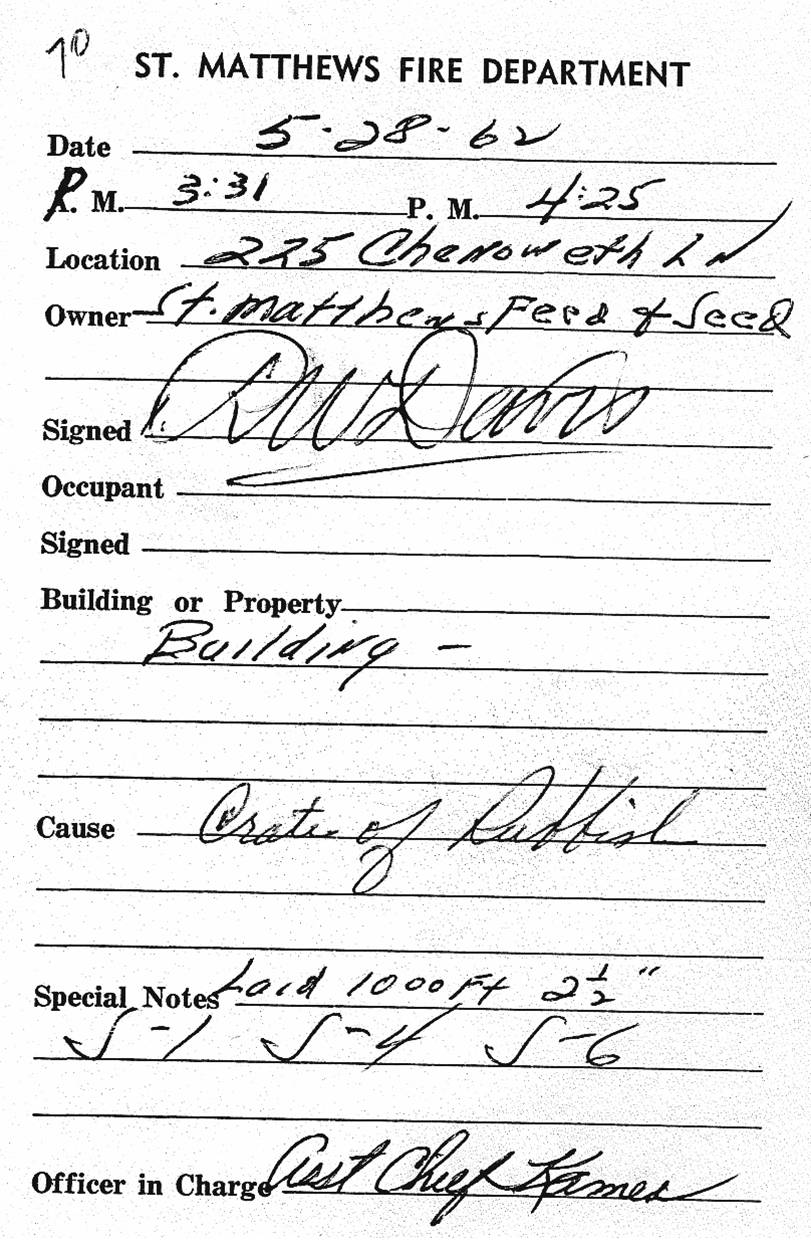 70 ST. MATTHEWS FIRE DEPARTMENT
Date 5-28-62
P. M. 3:31 P. M. 4:25
Location 225 Chenoweth LN
Owner St. Matthews Feed & Seed
Signed R W Davis
Occupant
Signed
Building or Property
Building -
Cause Crate of Rubbish
Special Notes Laid 1000 Ft 2 1/2 "
S-1 S-4 S-6
Officer in Charge Asst Chief Kamer